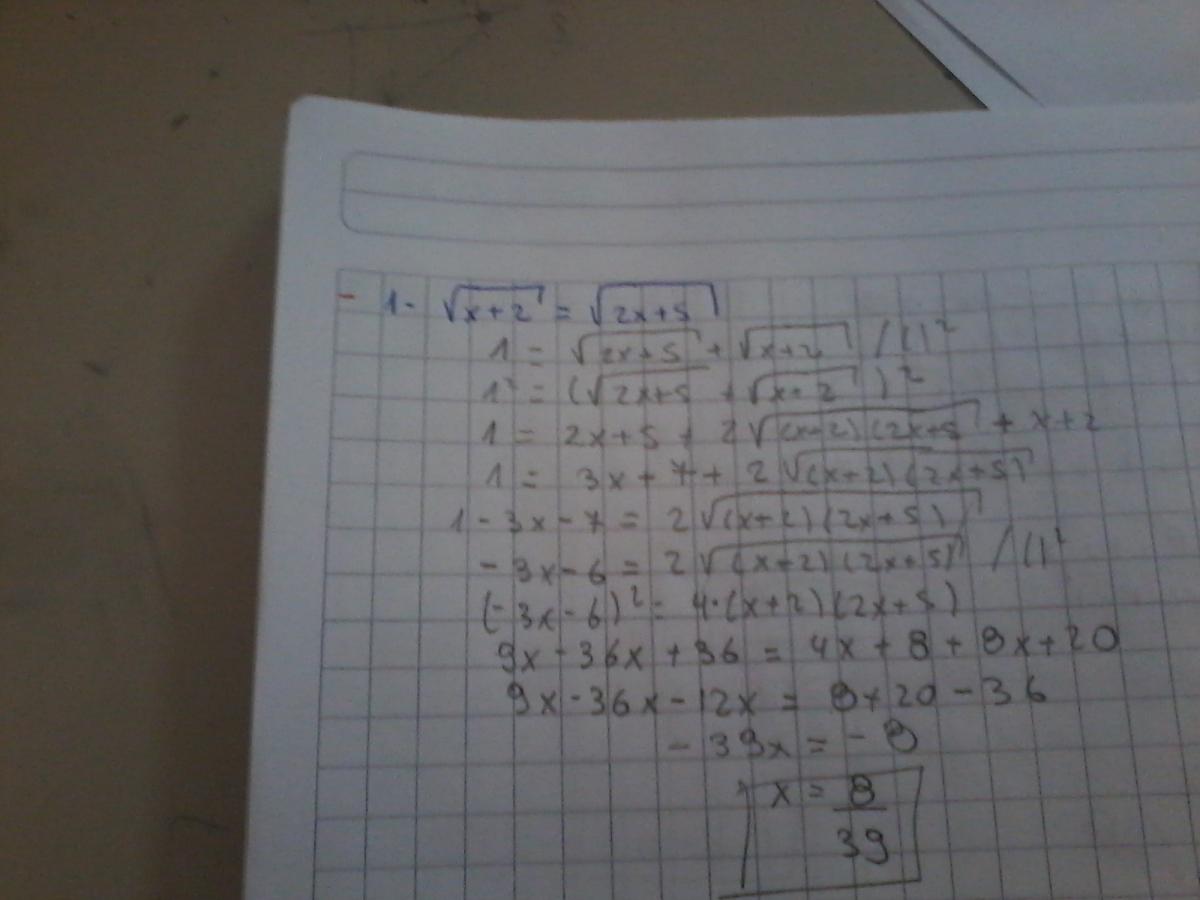 1 - √(x+2) = √(2x+5)
1 = √(2x+5) + √(x+2) /()²
1² = (√(2x+5) + √(x+2))²
1 = 2x+5 + 2√((x+2)(2x+5)) + x+2
1 = 3x + 7 + 2√((x+2)(2x+5))
1 - 3x - 7 = 2√((x+2)(2x+5))
-3x - 6 = 2√((x+2)(2x+5)) /()²
(-3x - 6)² = 4·(x+2)(2x+5)
9x - 36x + 36 = 4x + 8 + 8x + 20
9x - 36x - 12x = 8+20 - 36
-39x = -8
x = 8/39